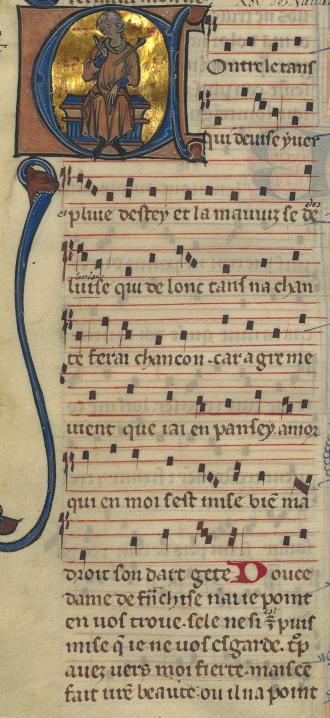 Ontre le tans
qui deuise yuer
et pluie destey et la mauuiz se de
luise qui de lonc tans na chan
te ferai chancon . car a gre me
uient que iai en pansey . amor
qui en moi sest mise bie᷑ ma
droit son dart gete Douce
dame de fra᷑chise nai ie point
en uos troue . sele ne si est puis
mise q ie ne uos esgarde . trop
auez uers moi fierte . mais ce
fait ur̃e beaute . ou il na point